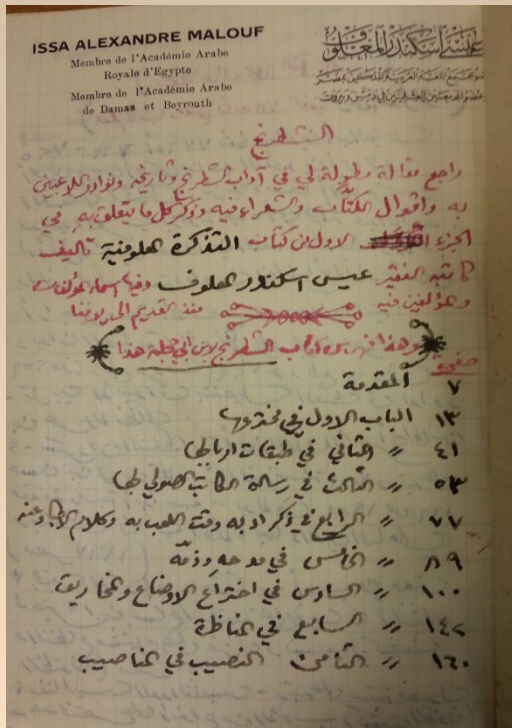 ISSA ALEXANDRE MALOUF
Membre de l'Académie Arabe
Royale d'Egypte
Membre de l'Académie Arabe
de Damas et Beyrouth
عيسى اسكندر المعلوف
الشطرنج
راجع مقالة مطولة لي في آداب الشطرنج وتاريخه ونوادر اللاعبين
به واقوال الكتّاب والشعراء فيه وذكر كل ما يتعلق به في
الجزء الاول من كتاب التذكرة المعلوفية تأليف
كاتبه الفقير عيسى اسكندر المعلوف وفيها اسماء المؤلفات
والمؤلفين فيه منذ القديم الى يومنا
وهذا فهرس كتاب الشطرنج لابن ابي حجلة هذا
صفحة
٧ المقدمة
١٣ الباب الاول في مخترعها
٤١ " الثاني في طبقات اربابها
٥٣ " الثالث في رسالة الصولي لها
٧٧ " الرابع في ذكر ادبه وقت اللعب به وكلام
٨٩ " الخامس في مدحه وذمّه
١٠٠ " السادس في اختراع الاوضاع والمخاريق
١٤٢ " السابع في المناظرة
١٦٠ " الثامن النصيب في المناصيب